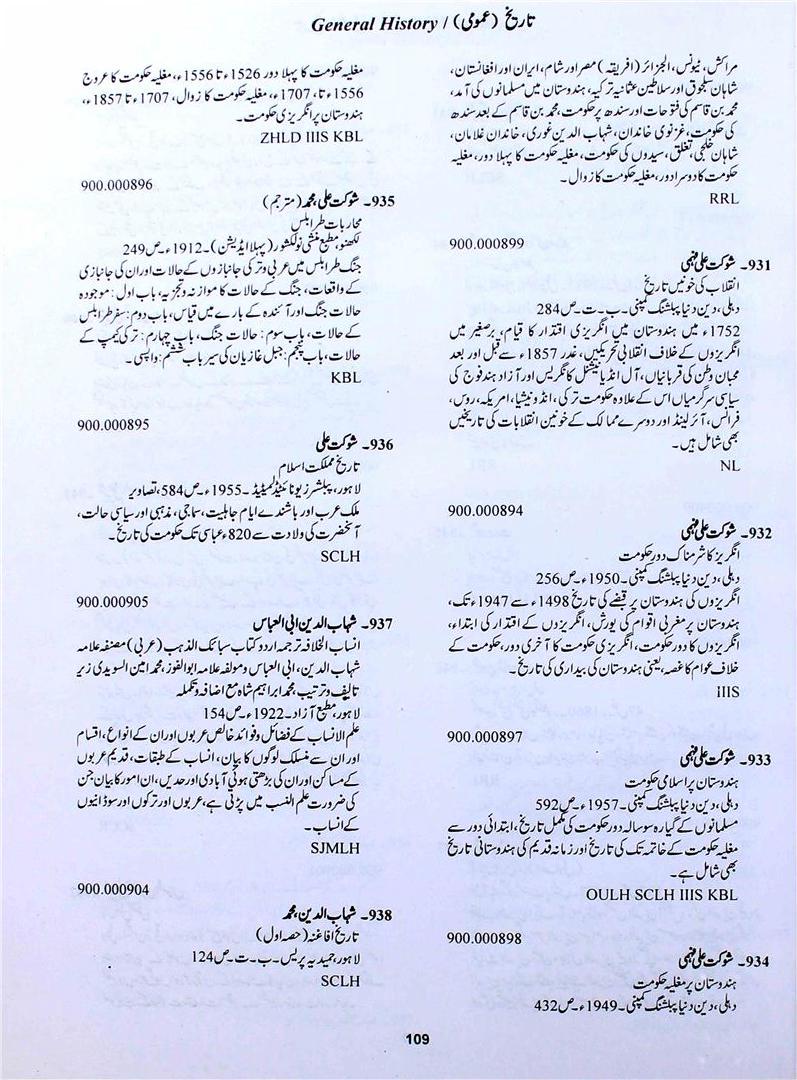 تاریخ (عمومی) / General History
مراکش، ٹیونس، الجزائر (افریقہ) مصر اور شام، ایران اور افغانستان،
شاہان سلجوق اور سلاطین عثمانیہ ترکیہ، ہندوستان میں مسلمانوں کی آمد،
محمد بن قاسم کی فتوحات اور سندھ پر حکومت، محمد بن قاسم کے بعد سندھ
کی حکومت، غزنوی خاندان، شہاب الدین غوری، خاندان غلامان،
شاہان خلجی، تغلق، سیدوں کی حکومت، مغلیہ حکومت کا پہلا دور، مغلیہ
حکومت کا دوسرا دور، مغلیہ حکومت کا زوال۔
RRL
900.000899
931۔ شوکت علی فہمی
انقلاب کی خونیں تاریخ
دہلی، دین دنیا پبلشنگ کمپنی۔ ب۔ت۔ ص284
1752ء میں ہندوستان میں انگریزی اقتدار کا قیام، برصغیر میں
انگریزوں کے خلاف انقلابی تحریکیں، غدر 1857ء سے قبل اور بعد
محبان وطن کی قربانیاں، آل انڈیا نیشنل کانگریس اور آزاد ہند فوج کی
سیاسی سرگرمیاں اس کے علاوہ حکومت ترکی، انڈونیشیا، امریکہ، روس،
فرانس، آئرلینڈ اور دوسرے ممالک کے خونین انقلابات کی تاریخیں
بھی شامل ہیں۔
NL
900.000894
932۔ شوکت علی فہمی
انگریز کا شرمناک دور حکومت
دہلی، دین دنیا پبلشنگ کمپنی۔1950ء۔ ص256
انگریزوں کی ہندوستان پر قبضے کی تاریخ 1498ء سے 1947ء تک،
ہندوستان پر مغربی اقوام کی یورش، انگریزوں کے اقتدار کی ابتداء،
انگریزوں کا دور حکومت، انگریزی حکومت کا آخری دور، حکومت کے
خلاف عوام کا غصہ، یعنی ہندوستان کی بیداری کی تاریخ۔
IIIS
900.000897
933۔ شوکت علی فہمی
ہندوستان پر اسلامی حکومت
دہلی، دین دنیا پبلشنگ کمپنی۔1957ء۔ ص592
مسلمانوں کے گیارہ سو سالہ دور حکومت کی مکمل تاریخ، ابتدائی دور سے
مغلیہ حکومت کے خاتمہ تک کی تاریخ اور زمانہ قدیم کی ہندوستانی تاریخ
بھی شامل ہے۔
OULH SCLH IIIS KBL
900.000898
934۔ شوکت علی فہمی
ہندوستان پر مغلیہ حکومت
دہلی، دین دنیا پبلشنگ کمپنی۔1949ء۔ ص432
مغلیہ حکومت کا پہلا دور 1526ء تا 1556ء، مغلیہ حکومت کا عروج
1556ء تا، 1707ء، مغلیہ حکومت کا زوال، 1707ء تا 1857ء،
ہندوستان پر انگریزی حکومت۔
ZHLD IIIS KBL
900.000896
935۔ شوکت علی، محمد (مترجم)
محاربات طرابلس
لکھنو، مطبع منشی نولکشور (پہلا ایڈیشن)۔1912ء۔ ص249
جنگ طرابلس میں عربی و ترکی جانبازوں کے حالات اور ان کی جانبازی
کے واقعات، جنگ کے حالات کا موازنہ و تجزیہ، باب اول: موجودہ
حالات جنگ اور آئندہ کے بارے میں قیاس، باب دوم: سفر طرابلس
کے حالات، باب سوم: حالات جنگ، باب چہارم: ترکی کیمپ کے
حالات، باب پنجم: جبل غازیان کی سیر باب ششم: واپسی۔
KBL
900.000895
936۔ شوکت علی
تاریخ مملکت اسلام
لاہور، پبلشرز یونائیٹڈ لمیٹیڈ۔1955ء۔ ص584، تصاویر
ملک عرب اور باشندے ایام جاہلیت، سماجی، مذہبی اور سیاسی حالت،
آنحضرت کی ولادت سے 820ء عباسی تک حکومت کی تاریخ۔
SCLH
900.000905
937۔ شہاب الدین ابی العباس
انساب الخلافہ ترجمہ اردو کتاب سبائک الذہب (عربی) مصنفہ علامہ
شہاب الدین، ابی العباس و مولفہ علامہ ابوالفوز، محمد امین السویدی زیر
تالیف و ترتیب محمد ابراہیم شاہ مع اضافہ و تکملہ
لاہور، مطبع آزاد۔1922ء۔ ص154
علم الانساب کے فضائل و فوائد خالص عربوں اور ان کے انواع، اقسام
اور ان سے منسلک لوگوں کا بیان، انساب کے طبقات، قدیم عربوں
کے مساکن اور ان کی بڑھتی ہوئی آبادی اور حدیں، ان امور کا بیان جن
کی ضرورت علم النسب میں پڑتی ہے، عربوں اور ترکوں اور سوڈانیوں
کے انساب۔
SJMLH
900.000904
938۔ شہاب الدین، محمد
تاریخ افاغنہ (حصہ اول)
لاہور، حمیدیہ پریس۔ ب۔ت۔ ص124
SCLH
109